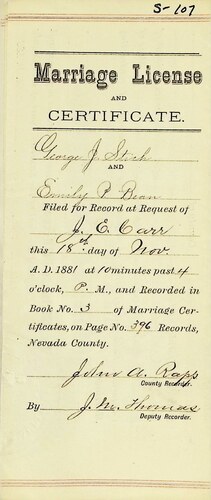 S-107
Marriage License
AND
CERTIFICATE.
George J. Stich
AND
Emily P. Bean
Filed for Record at Request of
J. E. Carr
this 18th day of Nov.
A. D. 1881 at 10 minutes past 4
o'clock, P. M., and Recorded in
Book No. 3 of Marriage Cer-
tificates, on Page No. 396 Records,
Nevada County.
John A. Rapp
County Recorder.
By J. M. Thomas
Deputy Recorder.